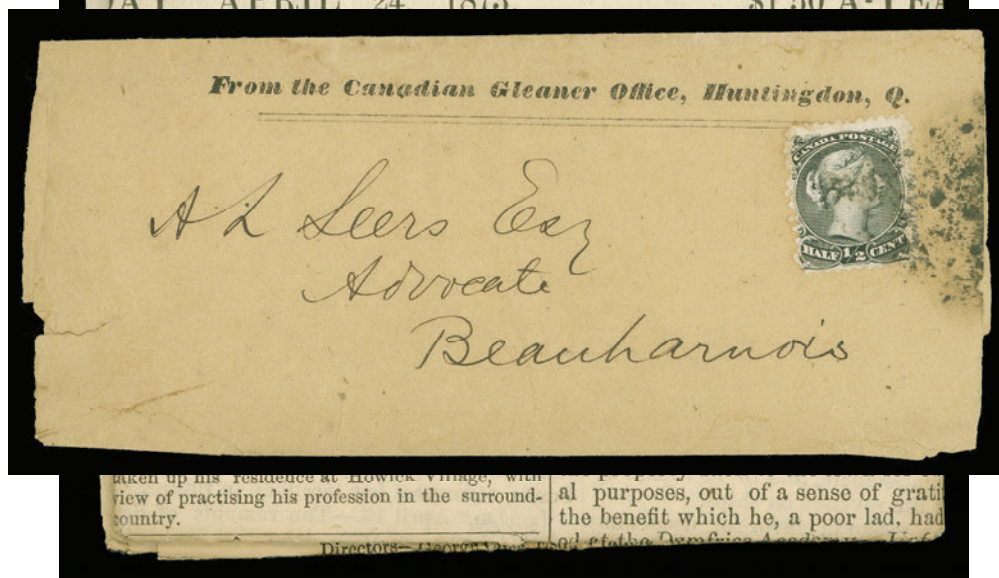 APRIL 24 1873
$1.50 A-YEA
From the Canadian Gleaner Office, Huntingdon, Q.
CANADA POSTAGE
HALF 1/2 CENT
A L Seers Esq
Advocate
Beauharnois
taken up his residence at Howick Village, with
view of practising his profession in the surround-
country.
Directors— George
al purposes, out of a sense of grati
the benefit which he, a poor lad, had
at the Dumfries Academy